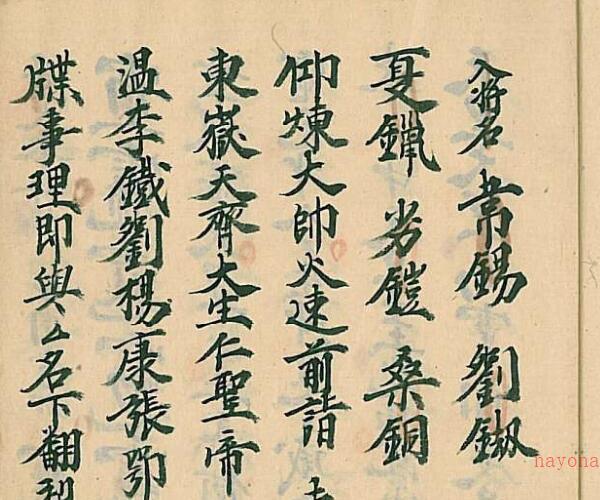 入將名 常錫 劉鏉
夏鑞 劣鎧 桑銅
仰煉大帥火速前詣
東嶽天齊大生仁聖帝
温李鐵劉楊康張鄂
牒事理即與厶名下翻
hayoha